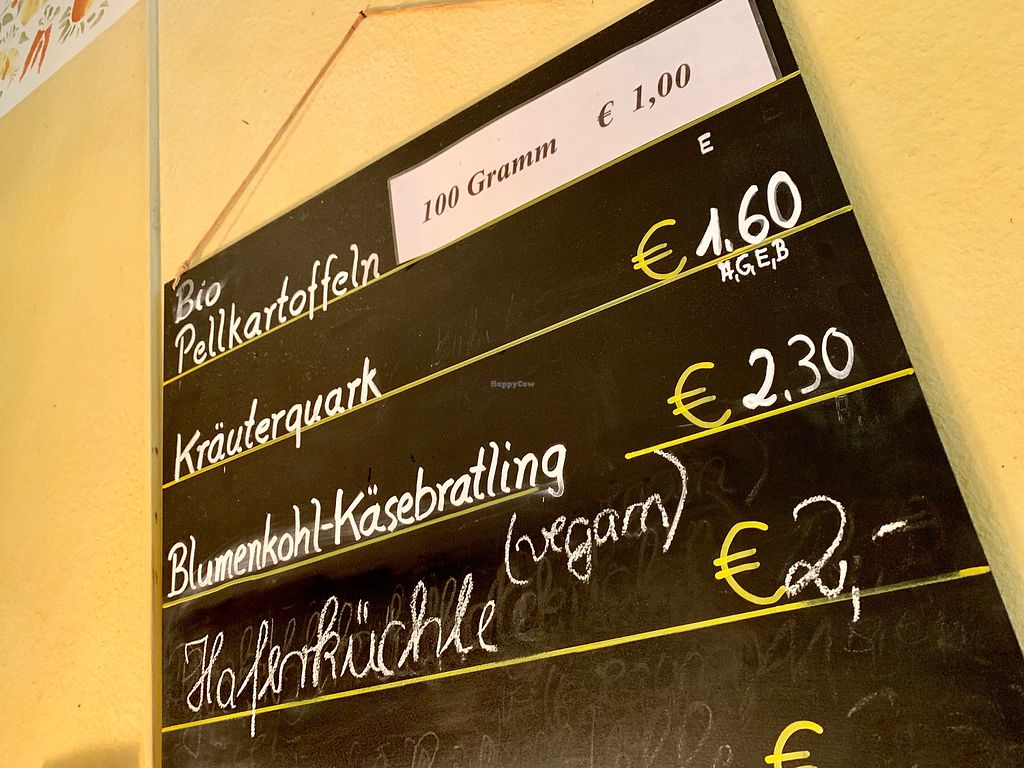 Bio
Pellkartoffeln 100 Gramm € 1,00
E
Kräuterquark € 1.60
A,G,E,B
Blumenkohl-Käsebratling € 2.30
Haferküchle (vegan) € 2,-
€
HappyCow